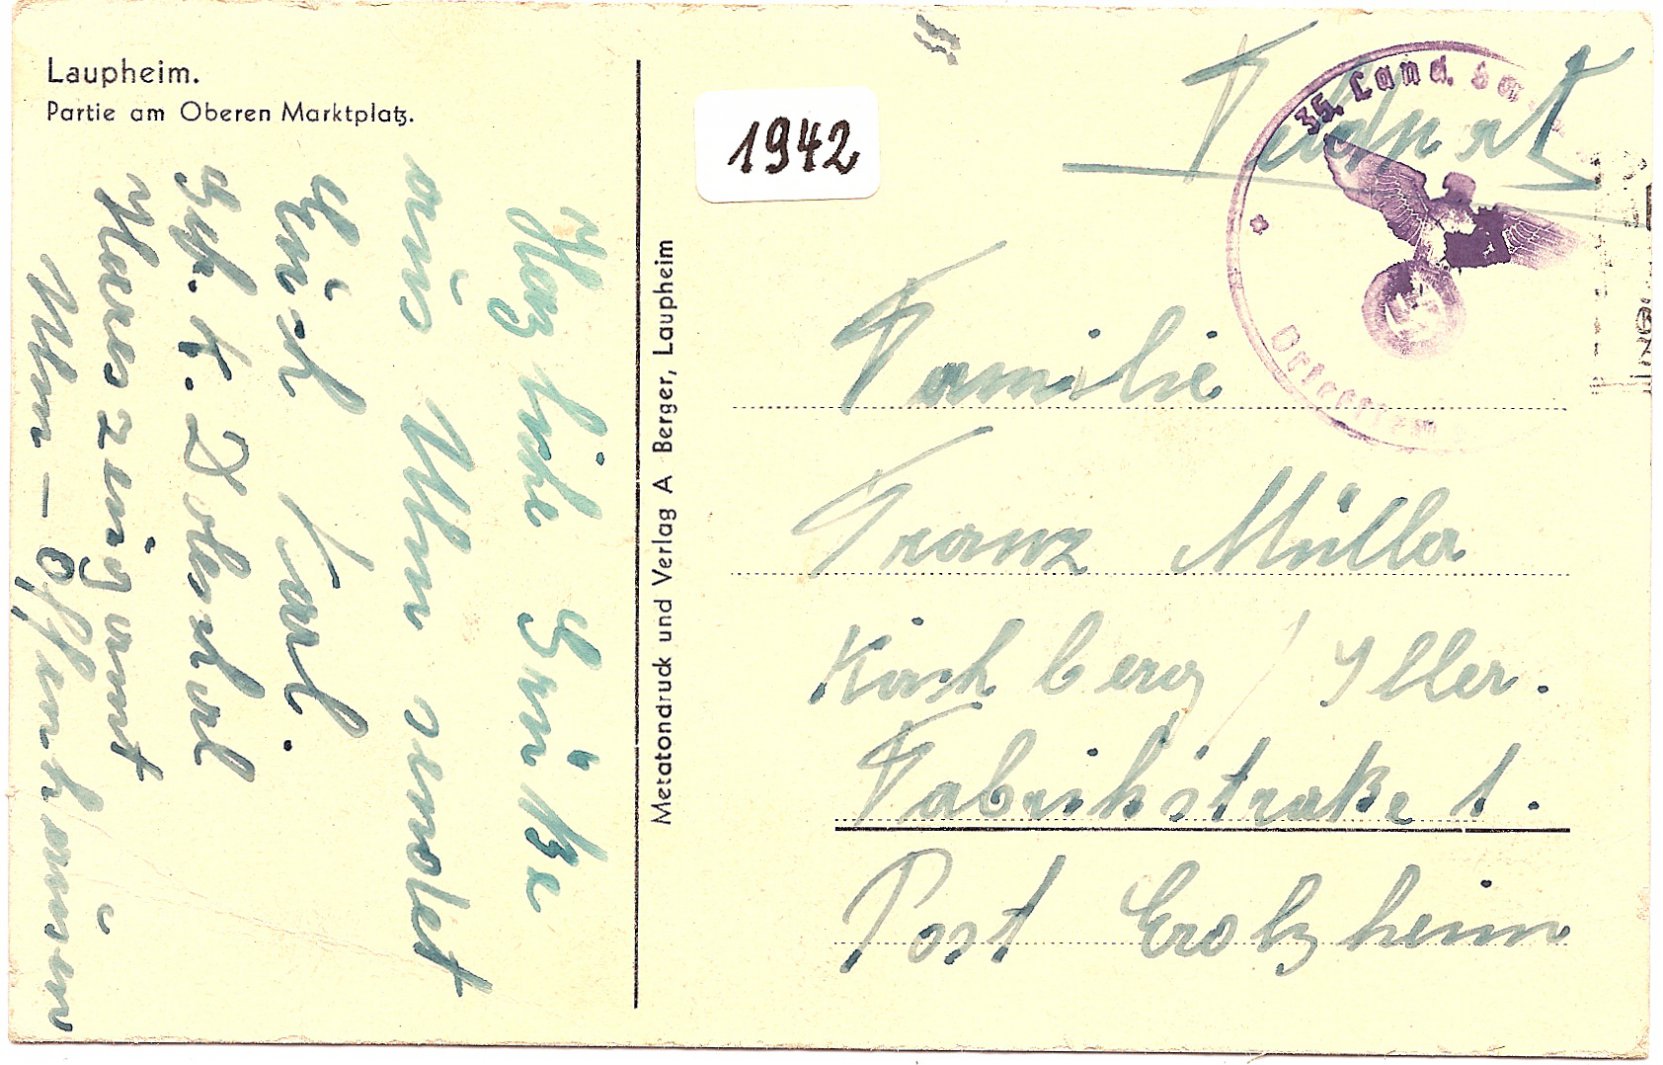 Laupheim.
Partie am Oberen Marktplatz.
Herzliche Grüße
aus Ulm sendet
Euch Karl.
Gfr. K.
Hereszeugamt
Ulm – Offenhausen
Metatondruck und Verlag A Berger, Laupheim
1942
Feldpost
35. Land.
Familie
Franz Müller
Kirchberg / Iller.
Fabrikstraße 1.
Post Erolzheim